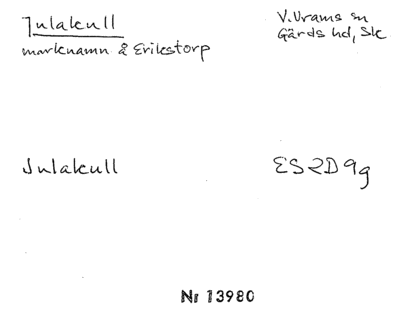 Julakull
marknamn å Erikstorp
V. Vrams sn
Gärds hd, Sk
Julakull
ES 2D 9g
Nr 13980